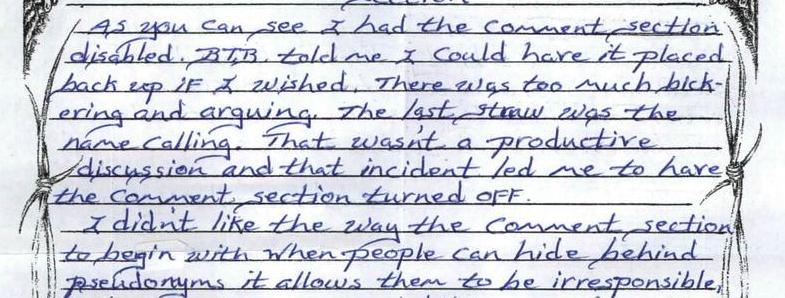 As you can see I had the comment section
disabled. BTB told me I could have it placed
back up if I wished. There was too much bick-
ering and arguing. The last straw was the
name calling. That wasn't a productive
discussion and that incident led me to have
the comment section turned off.
I didn't like the way the comment section
to begin with when people can hide behind
pseudonyms it allows them to be irresponsible,